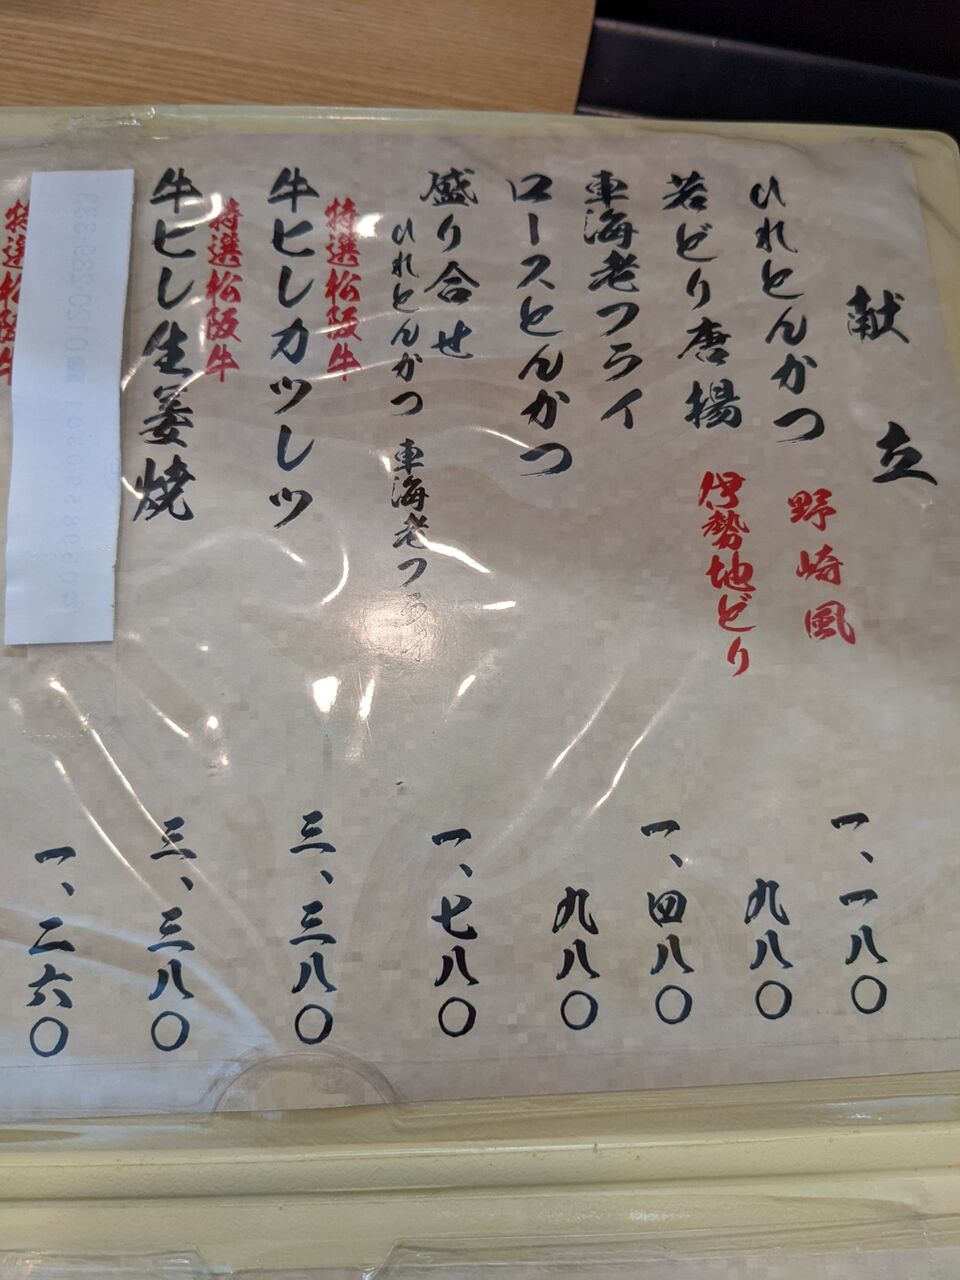 献立
ひれとんかつ 野崎風 一、一八〇
若どり唐揚 伊勢地どり 九八〇
車海老フライ 一、四八〇
ロースとんかつ 九八〇
盛り合せ 一、七八〇
ひれとんかつ 車海老フライ
特選松阪牛
牛ヒレカツレツ 三、三八〇
特選松阪牛
牛ヒレ生姜焼 三、三八〇
特選松阪牛
一、二六〇